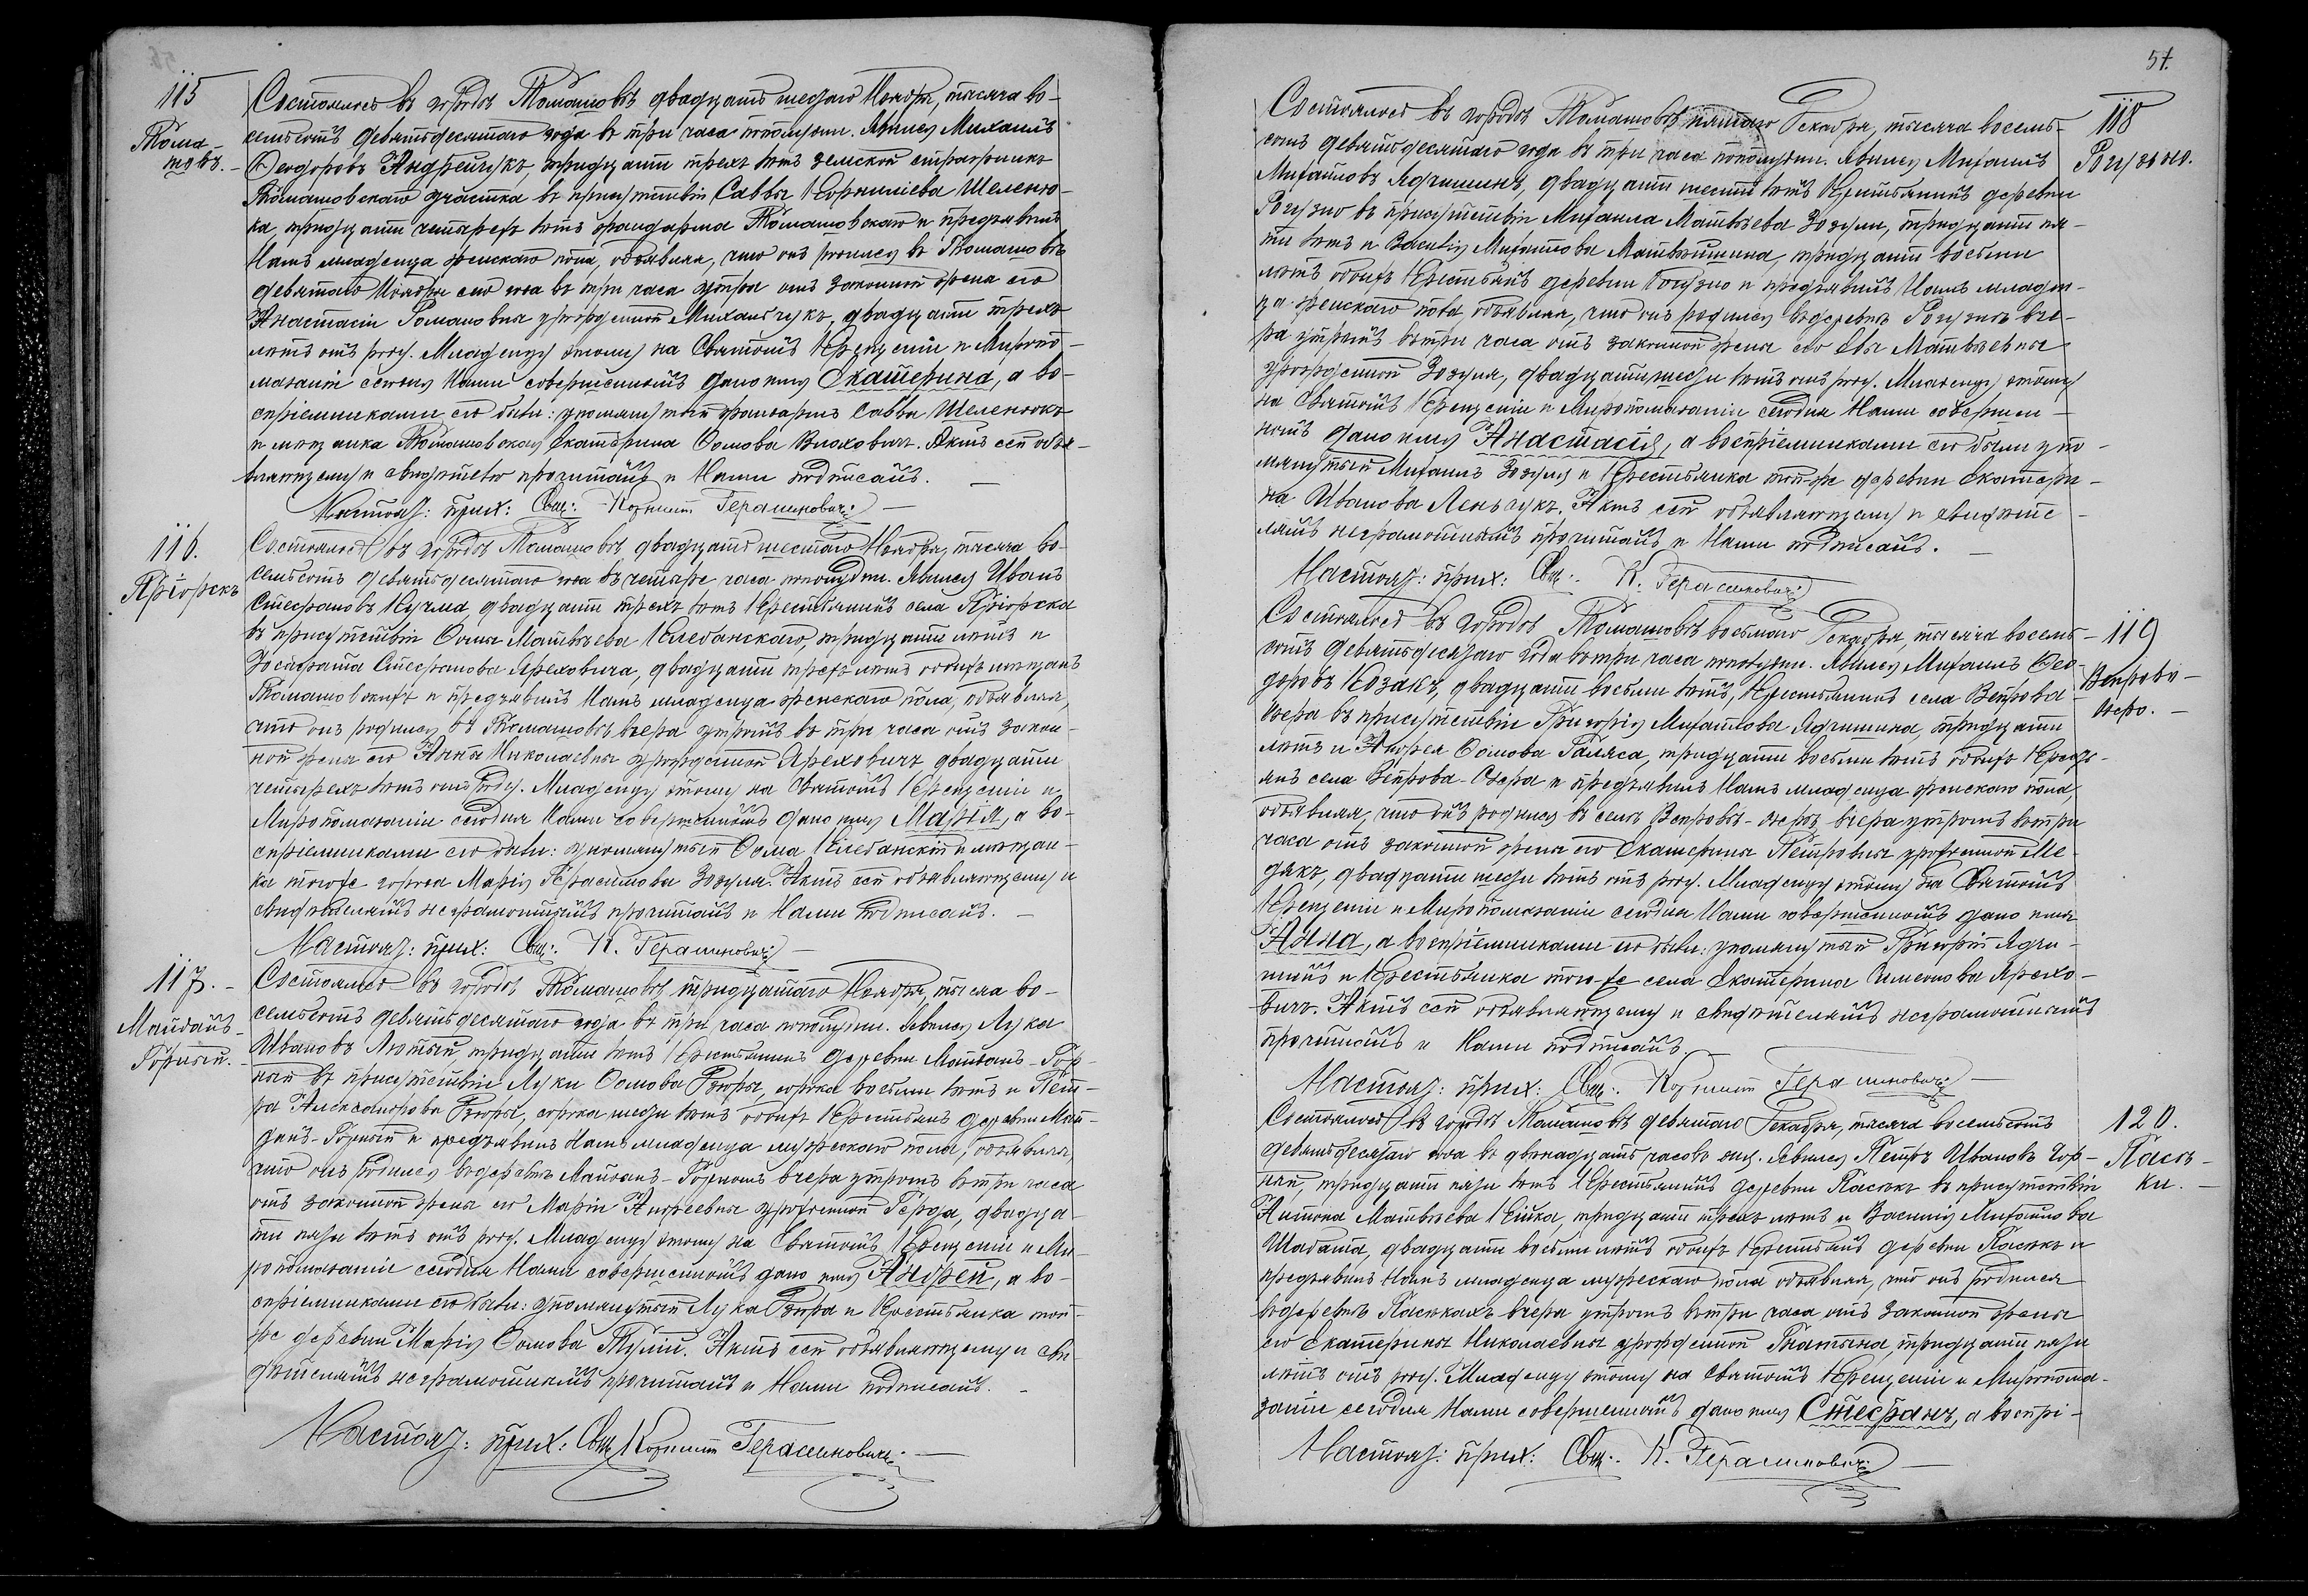 115
Тома-
шовъ.
Состоялось въ городѣ Томашовѣ двадцать шестаго Ноября, тысяча во-
семьсотъ девятьдесятаго года въ три часа пополудни. Явился Михаилъ
Ѳеодоровъ Андрейчукъ, тридцати трехъ лѣтъ земскій стражникъ
Томашовскаго участка въ присутствіи Саввы Корниліева Шеленю-
ка, тридцати четырехъ лѣтъ жандарма Томашовскаго и предъявилъ
Намъ младенца женскаго пола, объявляя, что онъ родился въ Томашовѣ
девятаго Ноября сего года въ три часа утра отъ законной жены его
Анастасіи Романовны урожденной Михальчукъ, двадцати трехъ
лѣтъ отъ род. Младенцу этому на Святомъ Крещеніи и Миропо-
мазаніи сегодня Нами совершенномъ дано имя Екатерина, а во-
спріемниками его были: упомянутый жандармъ Савва Шеленюкъ
и мѣщанка Томашовская Екатерина Ѳомова Влоховичъ. Актъ сей объя-
вляющему и свидѣтелю прочитанъ и Нами подписанъ. —
Настоят: прих: Свщ: Корнилій Герасимовичъ
116.
Пріорскъ
Состоялось въ городѣ Томашовѣ двадцать шестаго Ноября, тысяча во-
семьсотъ девятьдесятаго года въ четыре часа пополудни. Явился Иванъ
Стефановъ Кучма, двадцати трехъ лѣтъ Крестьянинъ села Пріорска
въ присутствіи Ѳомы Матвѣева Клебанскаго, тридцати лѣтъ и
Стефанова Ярековича, двадцати трехъ лѣтъ обоихъ мѣщанъ
Томашовскихъ и предъявилъ Намъ младенца женскаго пола, объявляя,
что онъ родился въ Томашовѣ вчера утромъ въ три часа отъ закон-
ной жены его Анны Николаевны урожденной Ярековичъ двадцати
четырехъ лѣтъ отъ род. Младенцу этому на Святомъ Крещеніи и
Миропомазаніи сегодня Нами совершенномъ дано имя Марія, а во-
спріемниками его были: упомянутый Ѳома Клебанскій и мѣщан-
ка того же города Марія Герасимова Зозуля. Актъ сей объявляющему и
свидѣтелямъ неграмотнымъ прочитанъ и Нами подписанъ. —
Настоят: прих: Свщ: К. Герасимовичъ
117. -
Майданъ-
Горный.
Состоялось въ городѣ Томашовѣ тридцатаго Ноября, тысяча во-
семьсотъ девятьдесятаго года въ три часа пополудни. Явился Лука
Ивановъ Лютый, тридцати лѣтъ Крестьянинъ деревни Майданъ-Гор-
ный въ присутствіи Луки Ѳомова Бзюры, сорока восьми лѣтъ и Пет-
ра Александрова Бзюры, сорока шести лѣтъ обоихъ Крестьянъ деревни Май-
данъ-Горный и предъявилъ Намъ младенца мужескаго пола, объявляя,
что онъ родился въ деревнѣ Майданъ-Горномъ вчера утромъ въ три часа
отъ законной жены его Маріи Андреевны урожденной Герда, двадца-
ти пяти лѣтъ отъ род. Младенцу этому на Святомъ Крещеніи и Ми-
ропомазаніи сегодня Нами совершенномъ дано имя Андрей, а во-
спріемниками его были: упомянутый Лука Бзюра и Крестьянка той-
же деревни Марія Ѳомова. Актъ сей объявляющему и сви-
дѣтелямъ неграмотнымъ прочитанъ и Нами подписанъ. -
Настоят: прих: Свщ: Корнилій Герасимовичъ. —
57.
118
Рогузно.
Состоялось въ городѣ Томашовѣ пятаго Декабря, тысяча восемь-
сотъ девятьдесятаго года въ три часа пополудни. Явился Михаилъ
Михайловъ Ядчишинъ, двадцати шести лѣтъ Крестьянинъ деревни
Рогузно въ присутствіи Михаила Матвѣева Зозули, тридцати пя-
ти лѣтъ и Василія Михайлова Матвѣйшина, тридцати восьми
лѣтъ обоихъ Крестьянъ деревни Рогузно и предъявилъ Намъ младен-
ца женскаго пола, объявляя, что онъ родился въ деревнѣ Рогузнѣ вче-
ра утромъ въ три часа отъ законной жены его Евы Матвѣевны
урожденной Зозуля, двадцати шести лѣтъ отъ род. Младенцу этому
на Святомъ Крещеніи и Миропомазаніи сегодня Нами совершен-
номъ дано имя Анастасія, а воспріемниками его были упо-
мянутый Михаилъ Зозуля и Крестьянка той-же деревни Екатери-
на Иванова Леньчукъ. Актъ сей объявляющему и свидѣте-
лямъ неграмотнымъ прочитанъ и Нами подписанъ. —
Настоят: прих: Свщ: К. Герасимовичъ
119
Вепрово-
озеро. —
Состоялось въ городѣ Томашовѣ восьмаго Декабря, тысяча восемь-
сотъ девятьдесятаго года въ три часа пополудни. Явился Михаилъ Ѳео-
доровъ Козакъ, двадцати восьми лѣтъ, Крестьянинъ села Вепрова-
Озера въ присутствіи Григорія Михайлова Ядчишина, тридцати
лѣтъ и Андрея Ѳомова Галяса, тридцати восьми лѣтъ обоихъ Кресть-
янъ села Вепрова-Озера и предъявилъ Намъ младенца женскаго пола,
объявляя, что онъ родился въ селѣ Вепровѣ-озерѣ вчера утромъ въ три
часа отъ законной жены его Екатерины Петровны урожденной Ме-
дякъ, двадцати шести лѣтъ отъ род. Младенцу этому на Святомъ
Крещеніи и Миропомазаніи сегодня Нами совершенномъ дано имя
Анна, а воспріемниками его были: упомянутый Григорій Ядчи-
шинъ и Крестьянка того же села Екатерина Симеонова Ярехо-
вичъ. Актъ сей объявляющему и свидѣтелямъ неграмотнымъ
прочитанъ и Нами подписанъ.
Настоят: прих: Свщ: Корнилій Герасимовичъ —
120.
Пасѣ-
ки. —
Состоялось въ городѣ Томашовѣ девятаго Декабря, тысяча восемьсотъ
девятьдесятаго года въ двѣнадцать часовъ дня. Явился Петръ Ивановъ Гор-
ний, тридцати пяти лѣтъ Крестьянинъ деревни Пасѣкъ въ присутствіи
Антона Матвѣева Кійка, тридцати трехъ лѣтъ и Василія Михайлова
Шабата, двадцати восьми лѣтъ обоихъ Крестьянъ деревни Пасѣкъ и
предъявилъ Намъ младенца мужескаго пола объявляя, что онъ родился
въ деревнѣ Пасѣкахъ вчера утромъ въ три часа отъ законной жены
его Екатерины Николаевны урожденной, тридцати пяти
лѣтъ отъ род. Младенцу этому на Святомъ Крещеніи и Миропома-
заніи сегодня Нами совершенномъ дано имя Стефанъ, а воспрі-
Настоят: прих: Свщ: К. Герасимовичъ —